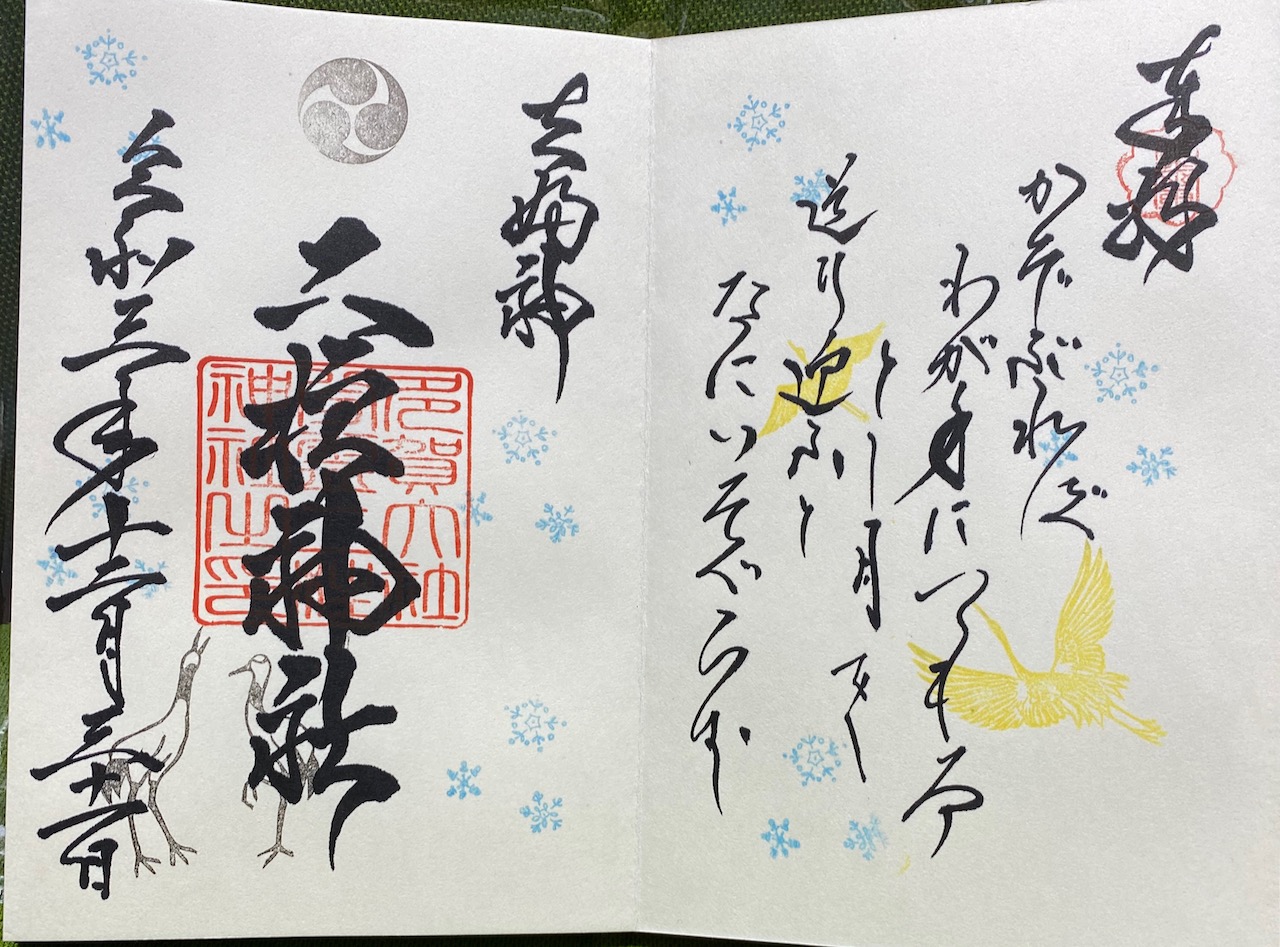 奉拝
かぞふれば
わが身につもる
とし月を
送り迎ふと
なにいそぐらむ
神社
多賀大社
神社之印
令和三年十二月三十一日